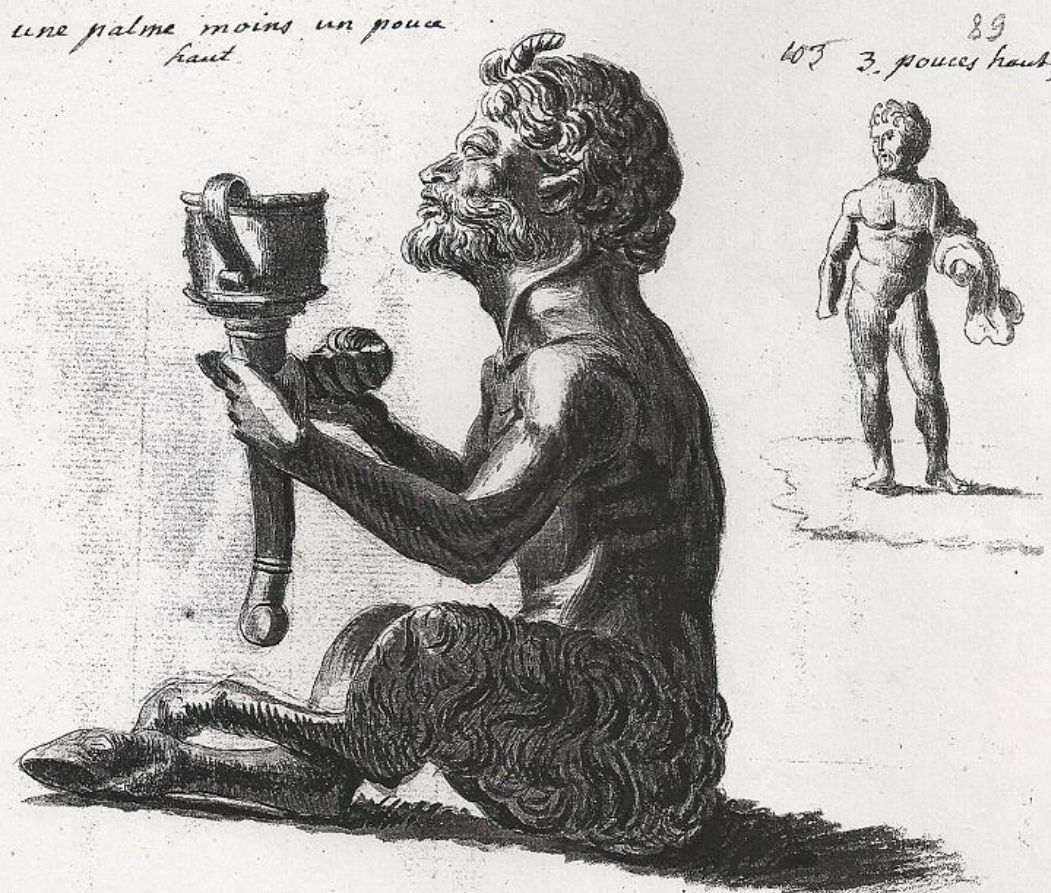 une palme moins un pouce
haut
89
103 3. pouces haut